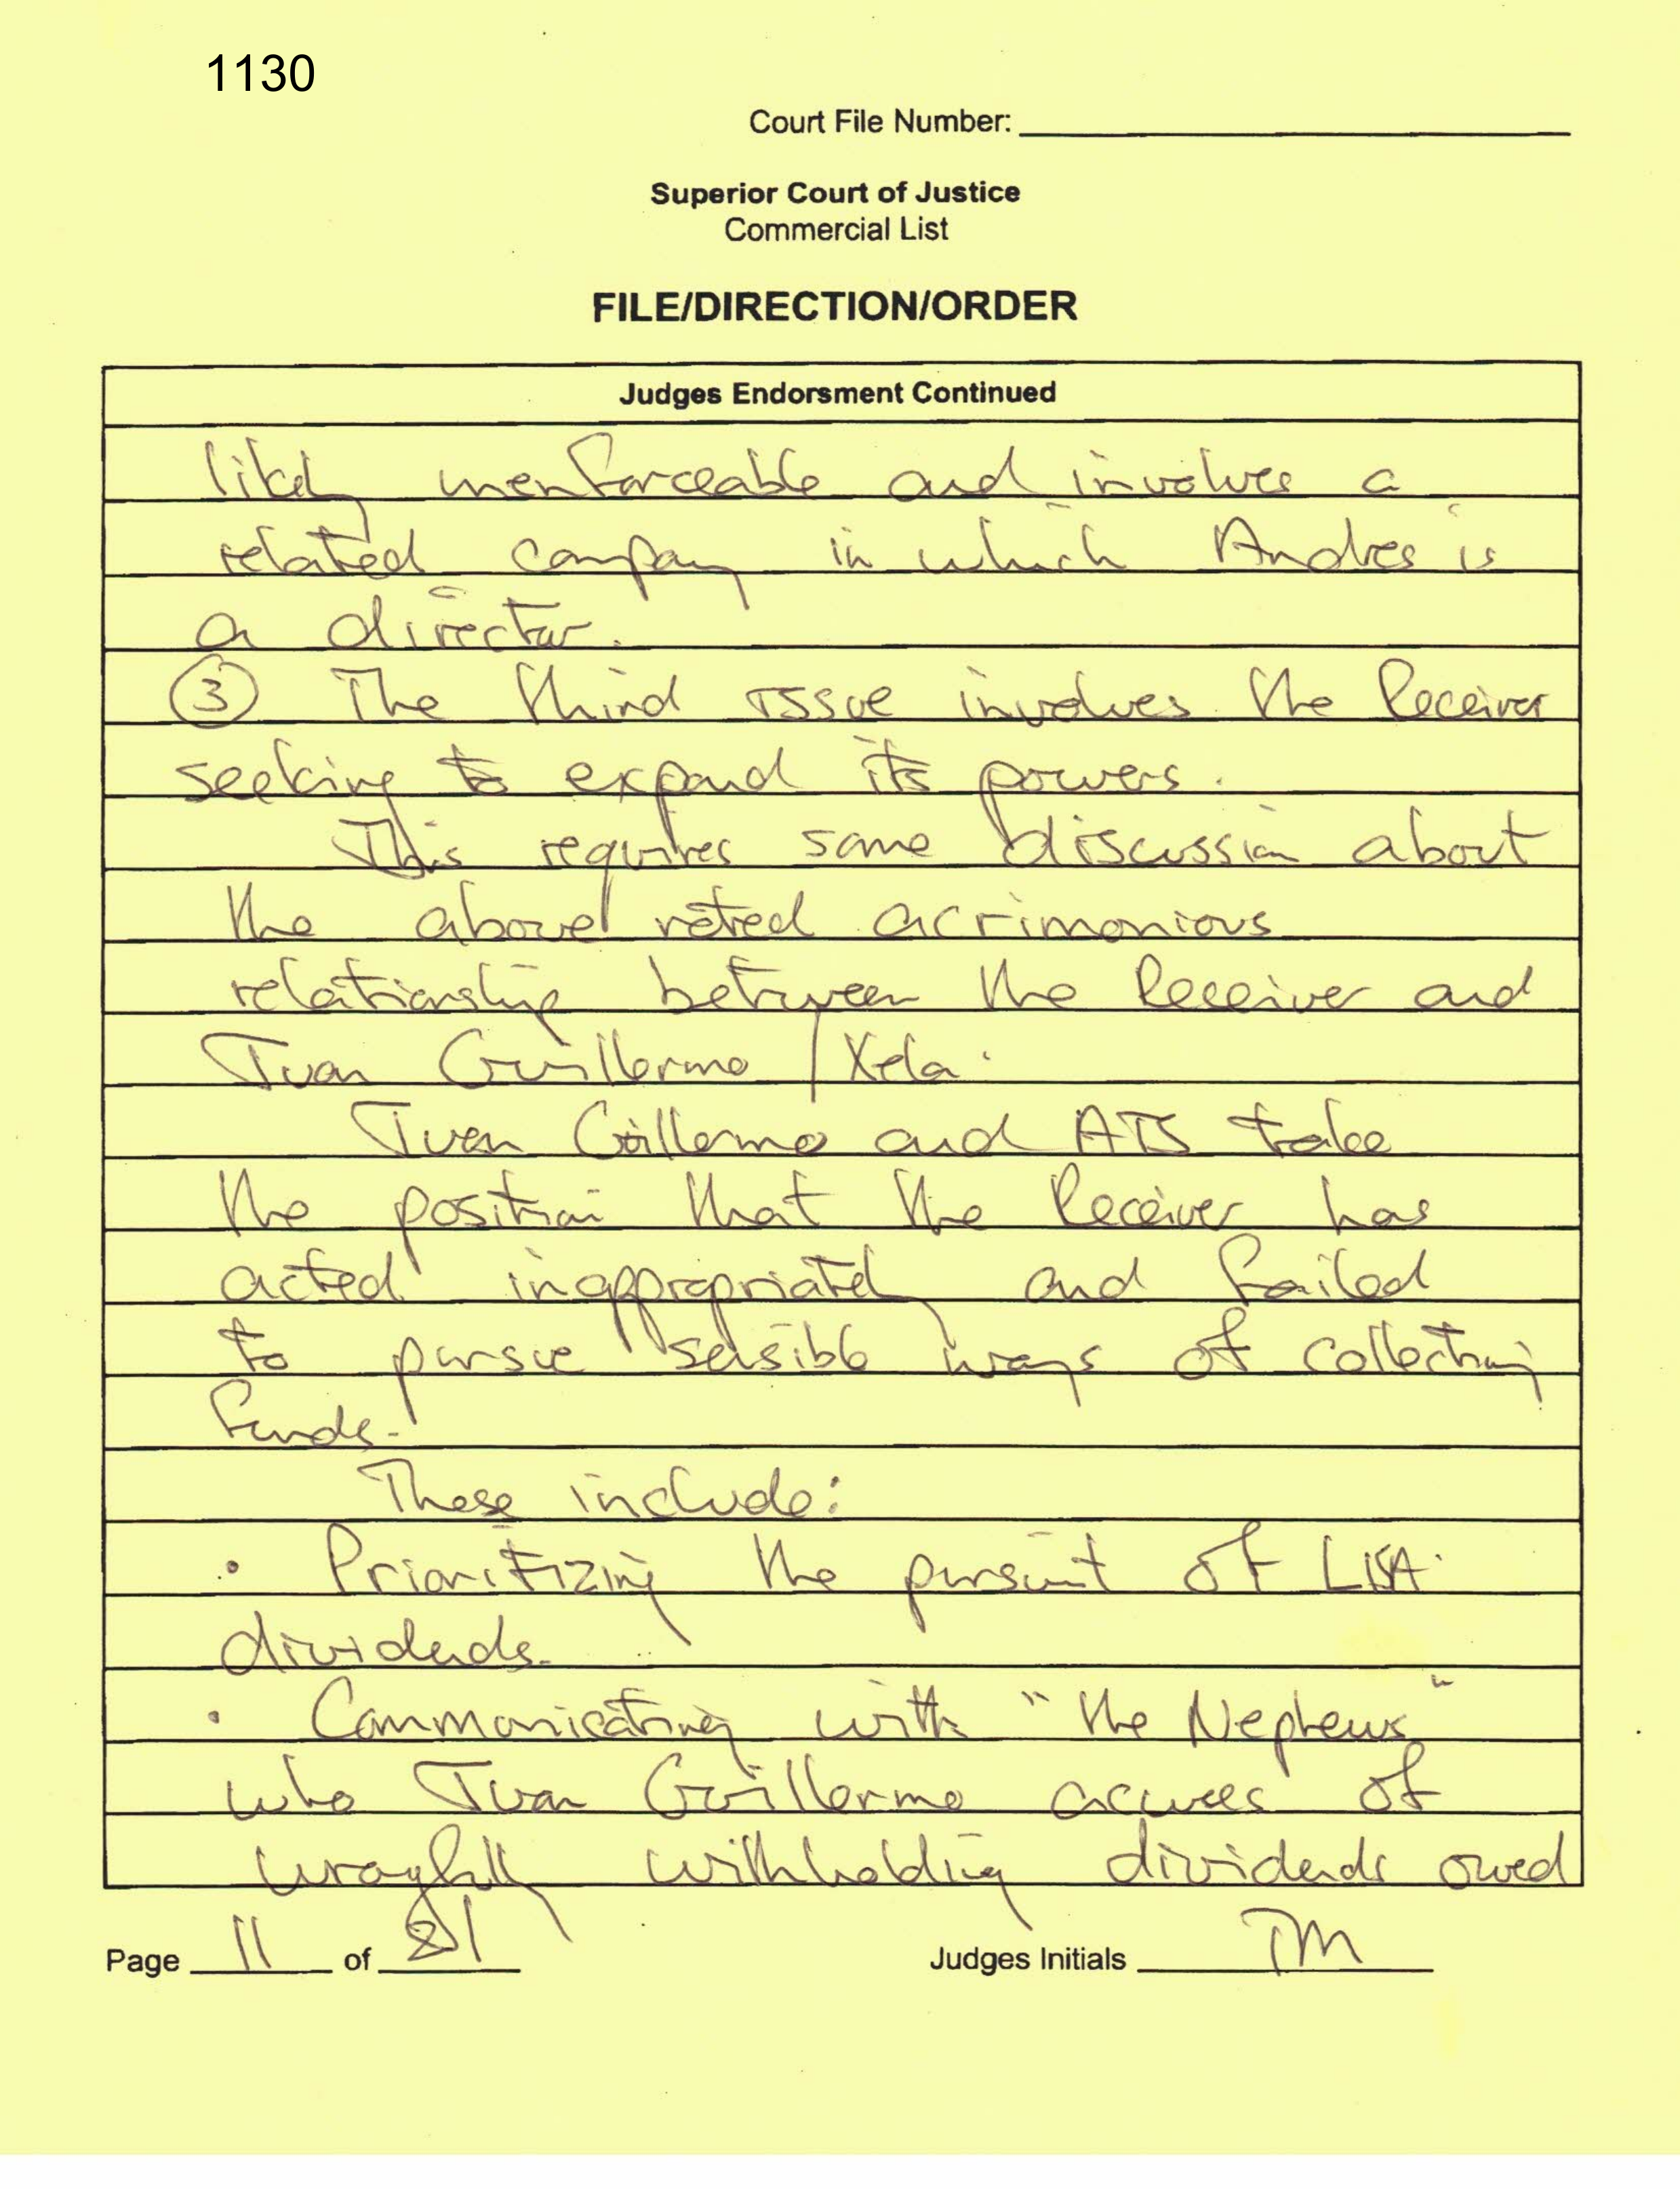 1130
Court File Number:
Superior Court of Justice
Commercial List
FILE/DIRECTION/ORDER
Judges Endorsment Continued
likely unenforceable and involves a
related company in which Andres is
a director.
③ The third issue involves the Receiver
seeking to expand its powers.
This requires some discussion about
the above noted acrimonious
relationship between the Receiver and
Juan Guillermo / Xela.
Juan Guillermo and ATS take
the position that the Receiver has
acted inappropriately and failed
to pursue sensible ways of collecting
funds.
These include:
• Prioritizing the pursuit of LISA
dividends.
• Communicating with "the Nephews"
who Juan Guillermo accuses of
wrongfully withholding dividends owed
Page 11 of
Judges Initials TM